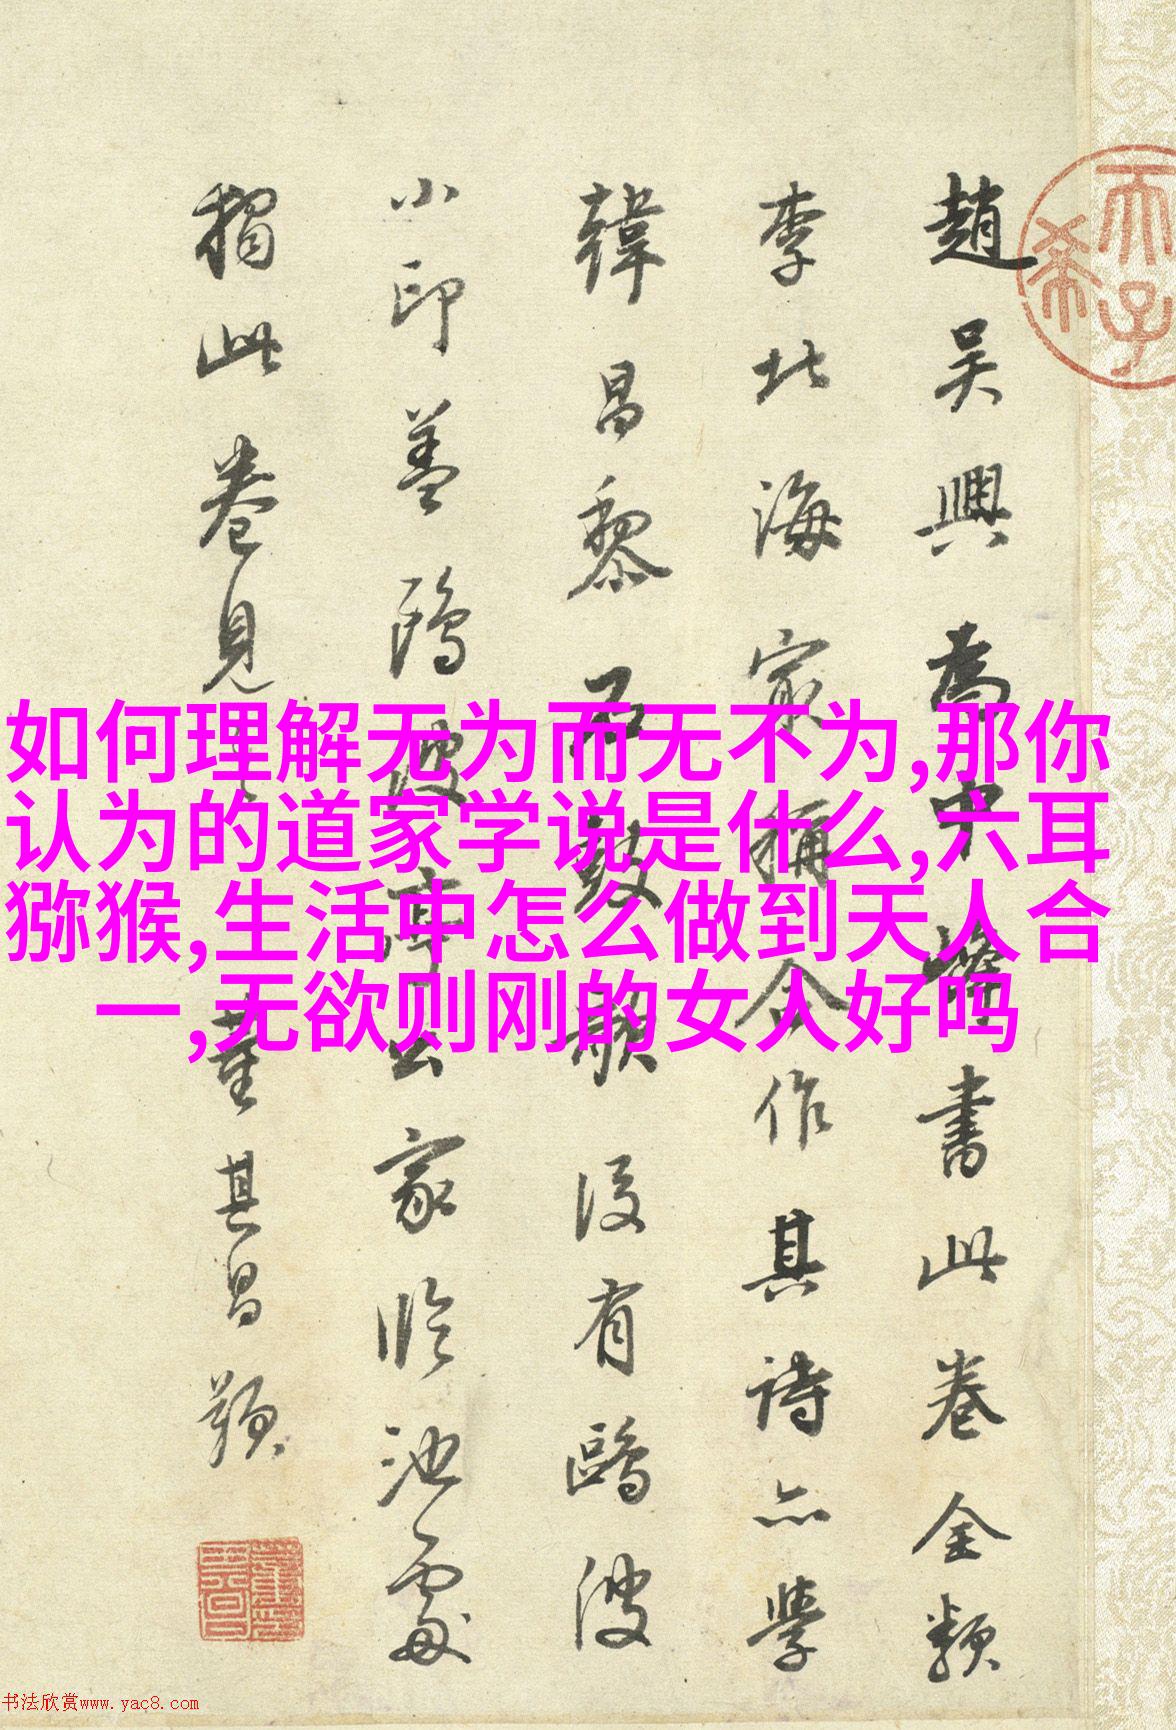 趙吳興為中峰書此卷全類
李北海冣稱合作其詩亦學
韓昌黎石鼓歌後有鷗波
小印蓋鷗波亭公家臨池處
獨此卷見之 董其昌題
如何理解无为而无不为,那你
认为的道家学说是什么,六耳
猕猴,生活中怎么做到天人合
一,无欲则刚的女人好吗
书法欣赏www.yac8.com